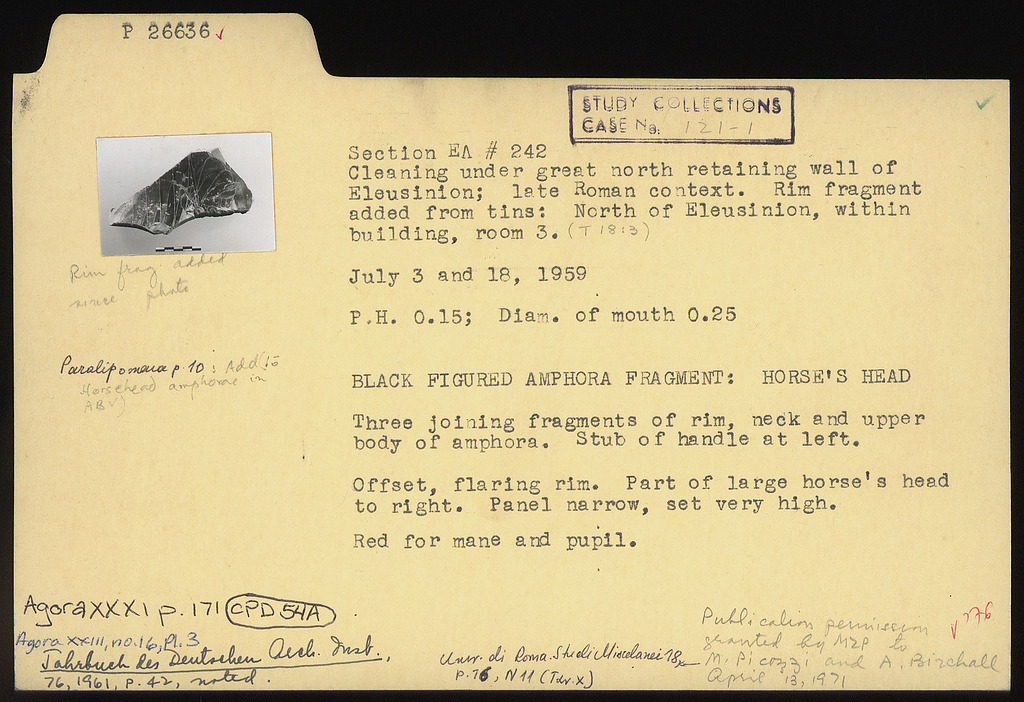 P 26636
STUDY COLLECTIONS
CASE No. 121-1
Section EΛ # 242
Cleaning under great north retaining wall of
Eleusinion; late Roman context. Rim fragment
added from tins: North of Eleusinion, within
building, room 3. (T 18:3)
July 3 and 18, 1959
P.H. 0.15; Diam. of mouth 0.25
Rim frag added
since photo
Paralipomena p. 10: Add (to
Horsehead amphorae in
ABV)
BLACK FIGURED AMPHORA FRAGMENT: HORSE'S HEAD
Three joining fragments of rim, neck and upper
body of amphora. Stub of handle at left.
Offset, flaring rim. Part of large horse's head
to right. Panel narrow, set very high.
Red for mane and pupil.
Agora XXXI p. 171 CPD 54A
Agora XXIII, no. 16, Pl. 3
Jahrbuch des Deutschen Arch. Inst.,
76, 1961, p. 42, noted.
Univ. di Roma. Studi Miscelanei 18
p. 16, N 11 (Tav. X)
Publication permission
granted by MZP to
M. Picozzi and A. Birchall
April 13, 1971